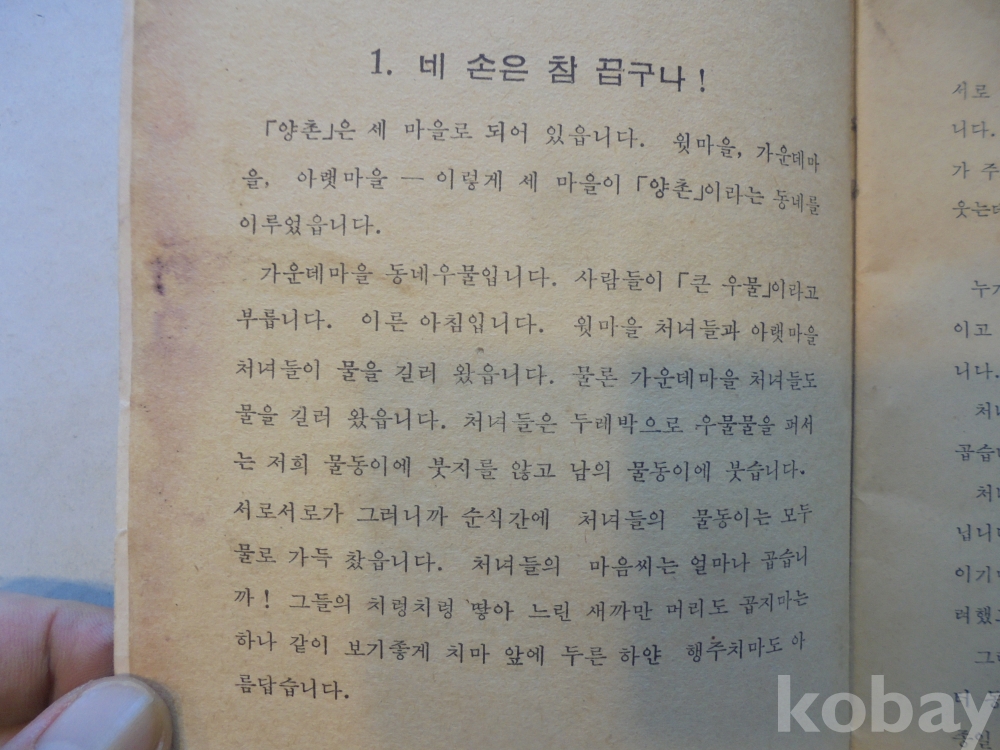 1. 네 손은 참 끕구나!
「양촌」은 세 마을로 되어 있읍니다. 웟마을, 가운데마
을, 아랫마을 — 이렇게 세 마을이 「양촌」이라는 동네를
이루었읍니다.
가운데마을 동네우물입니다. 사람들이 「큰 우물」이라고
부릅니다. 이른 아침입니다. 웟마을 처녀들과 아랫마을
처녀들이 물을 길러 왔읍니다. 물론 가운데마을 처녀들도
물을 길러 왔읍니다. 처녀들은 두레박으로 우물물을 퍼서
는 저희 물동이에 붓지를 않고 남의 물동이에 붓습니다.
서로서로가 그러니까 순식간에 처녀들의 물동이는 모두
물로 가득 찼읍니다. 처녀들의 마음씨는 얼마나 곱습니
까! 그들의 치렁치렁 땋아 느린 새까만 머리도 곱지마는
하나 같이 보기좋게 치마 앞에 두른 하얀 행주치마도 아
름답습니다.
서로
니다.
가 주
웃는데
누가
이고
니다.
처녀
곱습니
처녀
닙니다
이기
려했
kobay